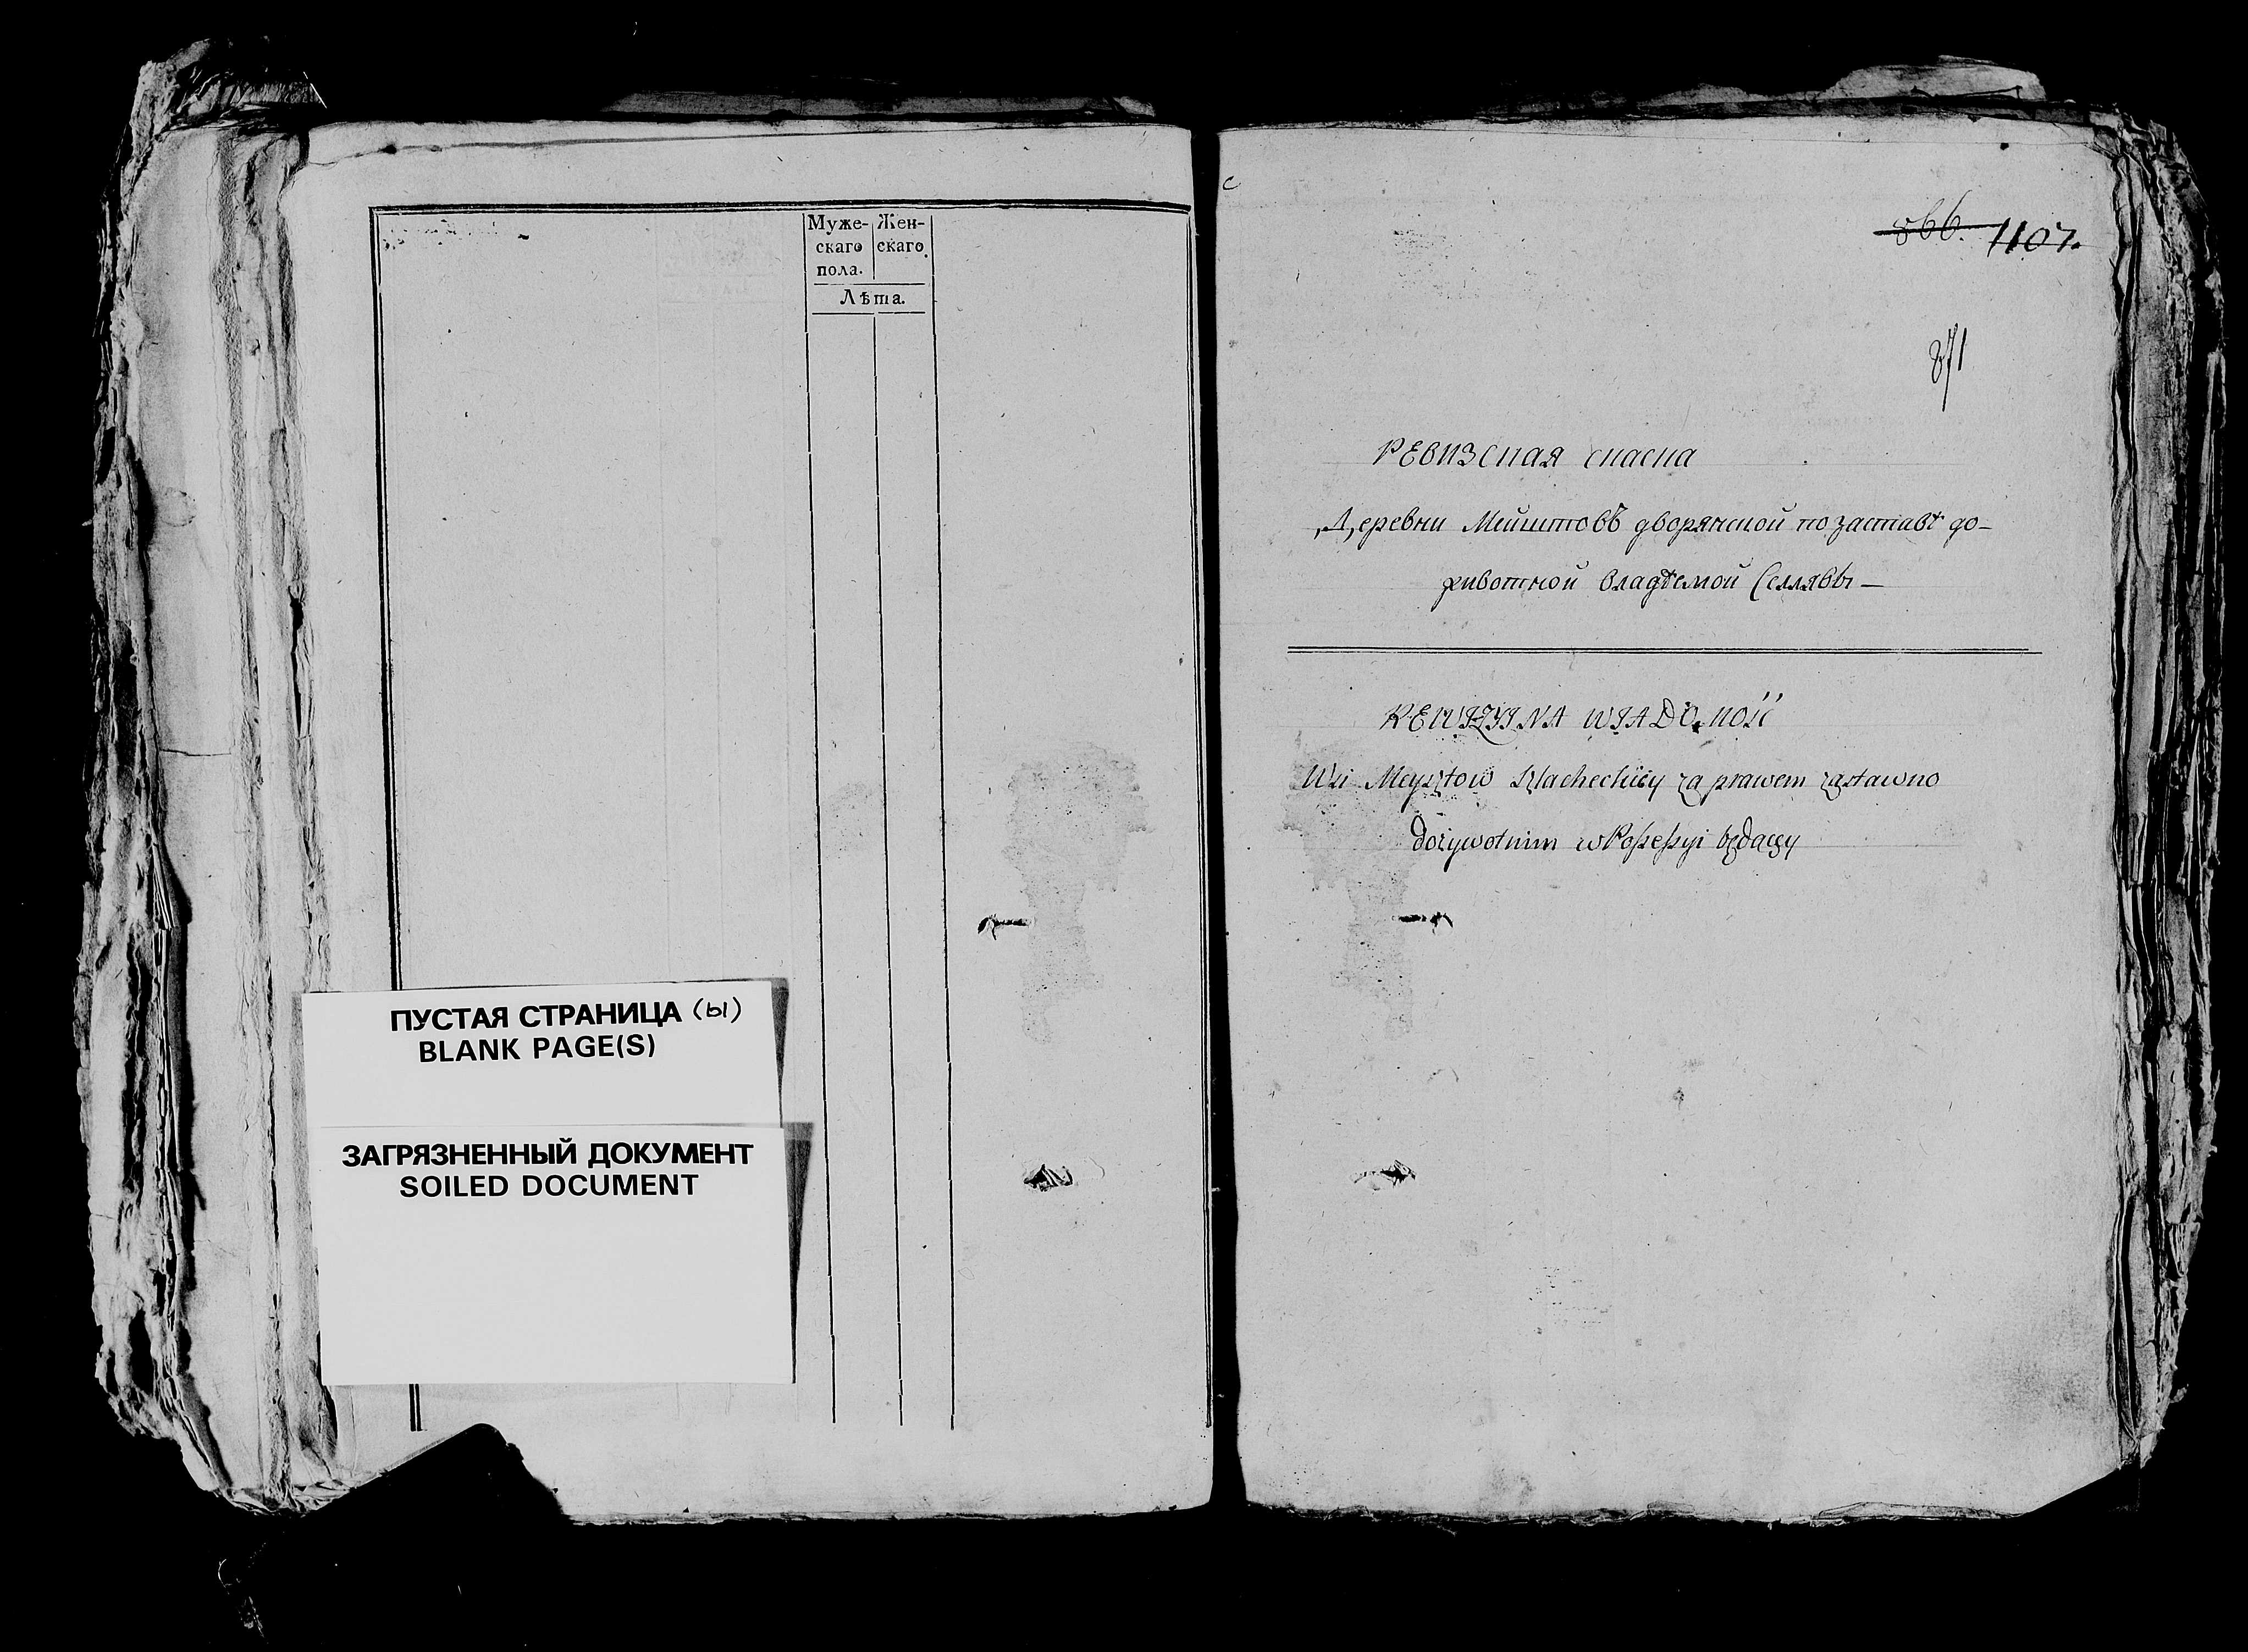 Муже- Жен-
скаго скаго.
пола.
Лѣта.
ПУСТАЯ СТРАНИЦА (ы)
BLANK PAGE(S)
ЗАГРЯЗНЕННЫЙ ДОКУМЕНТ
SOILED DOCUMENT
866. 1107.
871
РЕВИЗСКАЯ скаска
Деревни Мейштовъ дворянской по заставѣ до-
животной владѣемой Селлявы —
REWIZYINA WIADOMOść
Wsi Meysztow Szlacheckiey za prawem zastawno
dożywotnim w Possessyi będącey